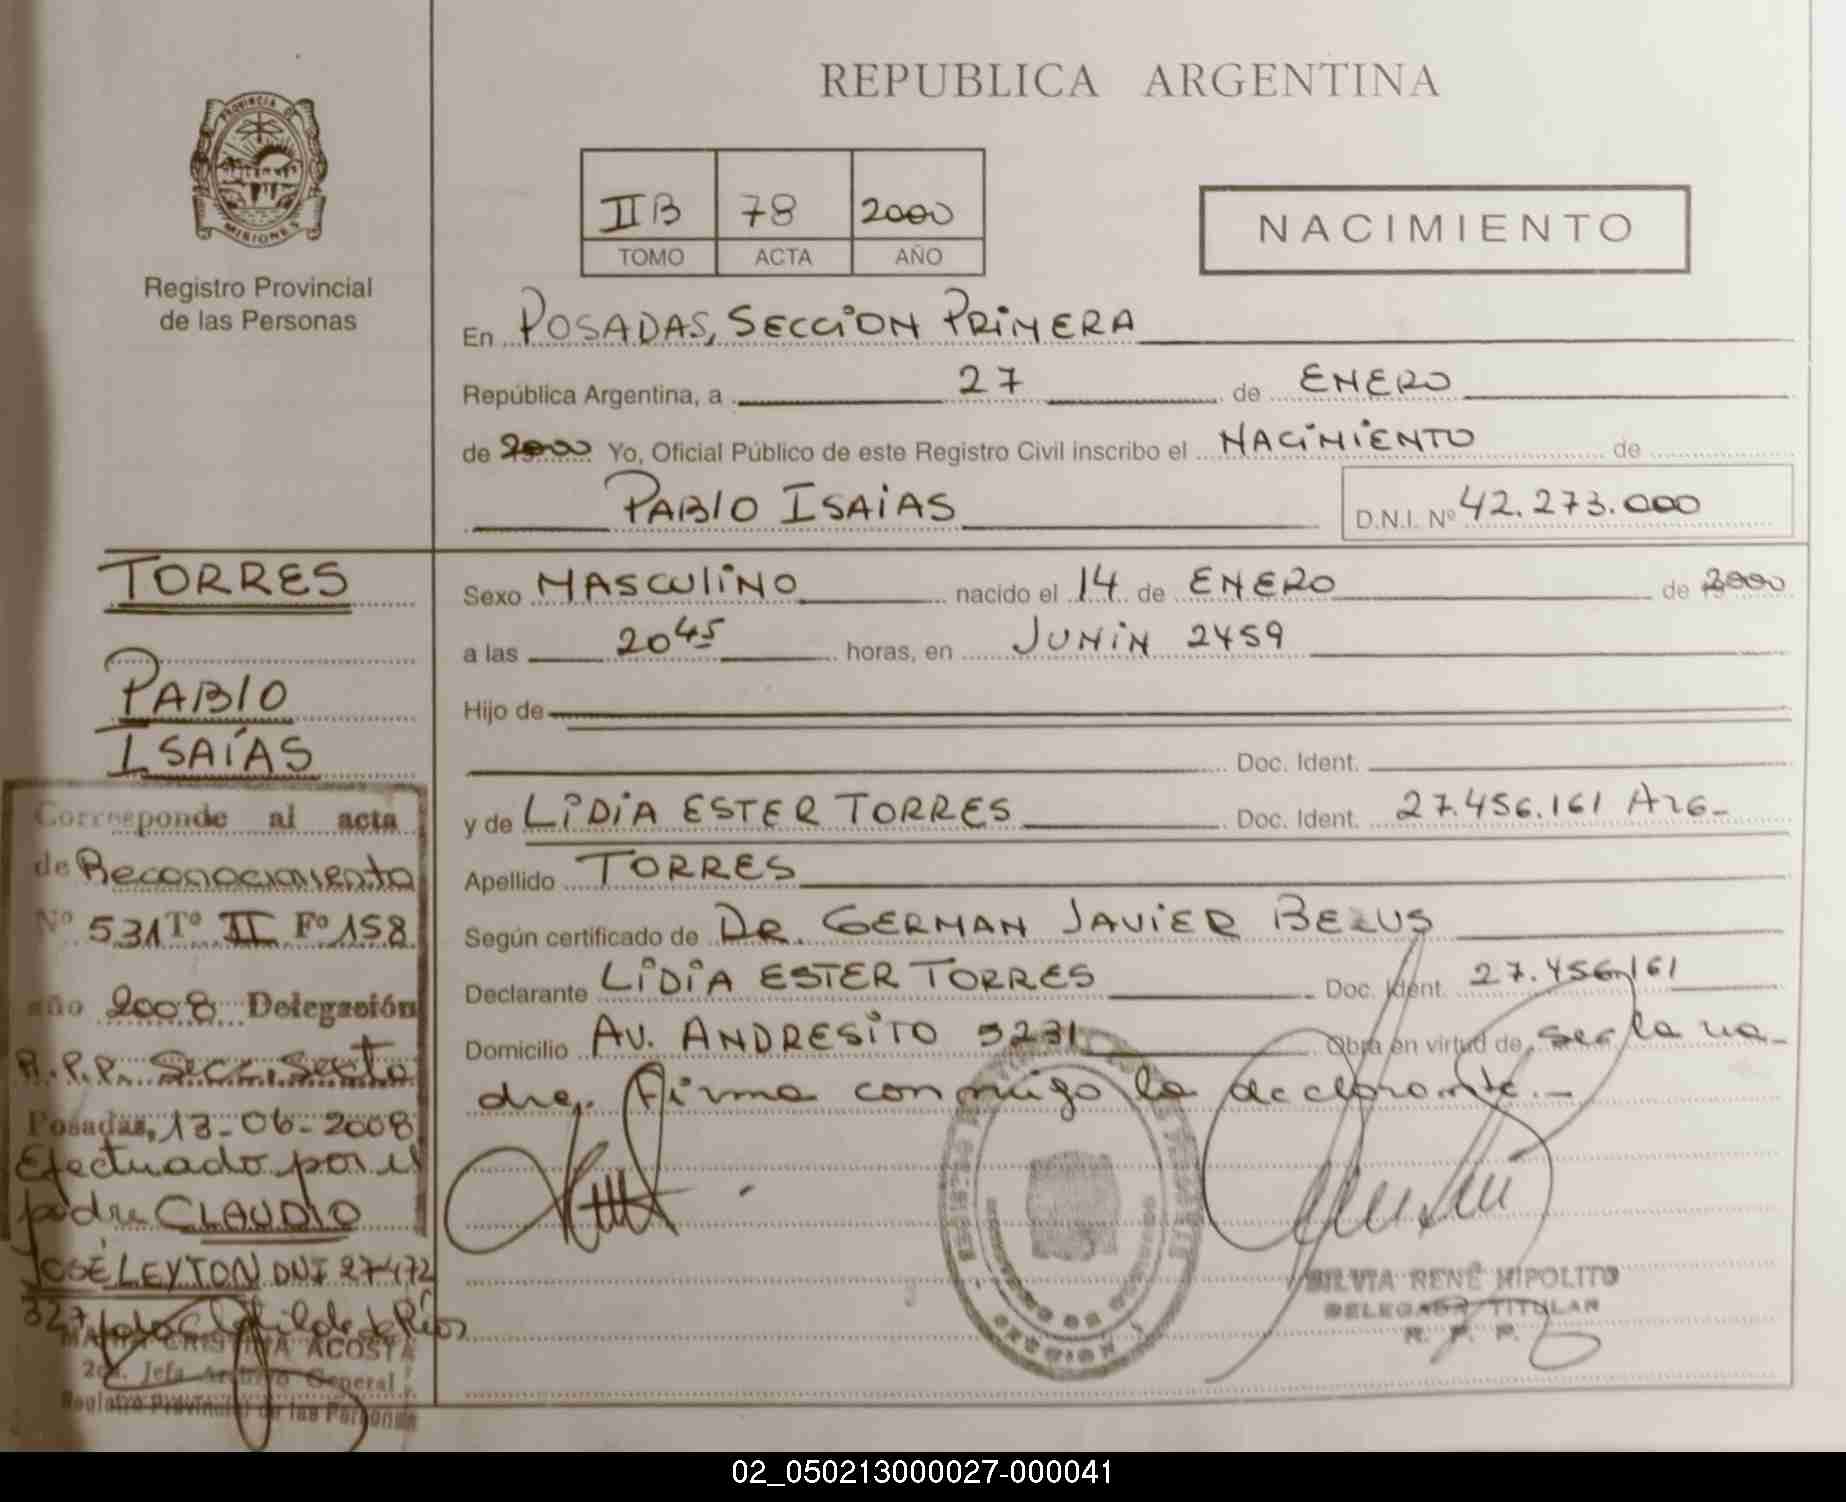 REPUBLICA ARGENTINA
PROVINCIA DE
MISIONES
Registro Provincial
de las Personas
II B 78 2000
TOMO ACTA AÑO
NACIMIENTO
En POSADAS, SECCION PRIMERA
República Argentina, a 27 de ENERO
de 2000 Yo, Oficial Público de este Registro Civil inscribo el NACIMIENTO de
PABLO ISAIAS
D.N.I. Nº 42.273.000
TORRES
PABLO
ISAÍAS
Sexo MASCULINO nacido el 14 de ENERO de 2000
a las 20 45 horas, en JUNIN 2459
Hijo de
Doc. Ident.
y de LIDIA ESTER TORRES Doc. Ident. 27.456.161 ARG-
Apellido TORRES
Según certificado de DR. GERMAN JAVIER BEZUS
Declarante LIDIA ESTER TORRES Doc. Ident. 27.456.161
Domicilio AV. ANDRESITO 5231 Obra en virtud de ser la ma-
dre. Firma conmigo la declarante.-
Corresponde al acta
de Reconocimiento
Nº 531 Tº II Fº 158
año 2008 Delegación
R.P.P. Secc. Sexta
Posadas, 13-06-2008
Efectuado por el
padre CLAUDIO
JOSÉ LEYTON DNI 27472
327
MARIA CRISTINA ACOSTA
2da. Jefa Archivo General
Registro Provincial de las Personas
SILVIA RENÉ HIPOLITO
DELEGADA TITULAR
R. P. P.
02_050213000027-000041